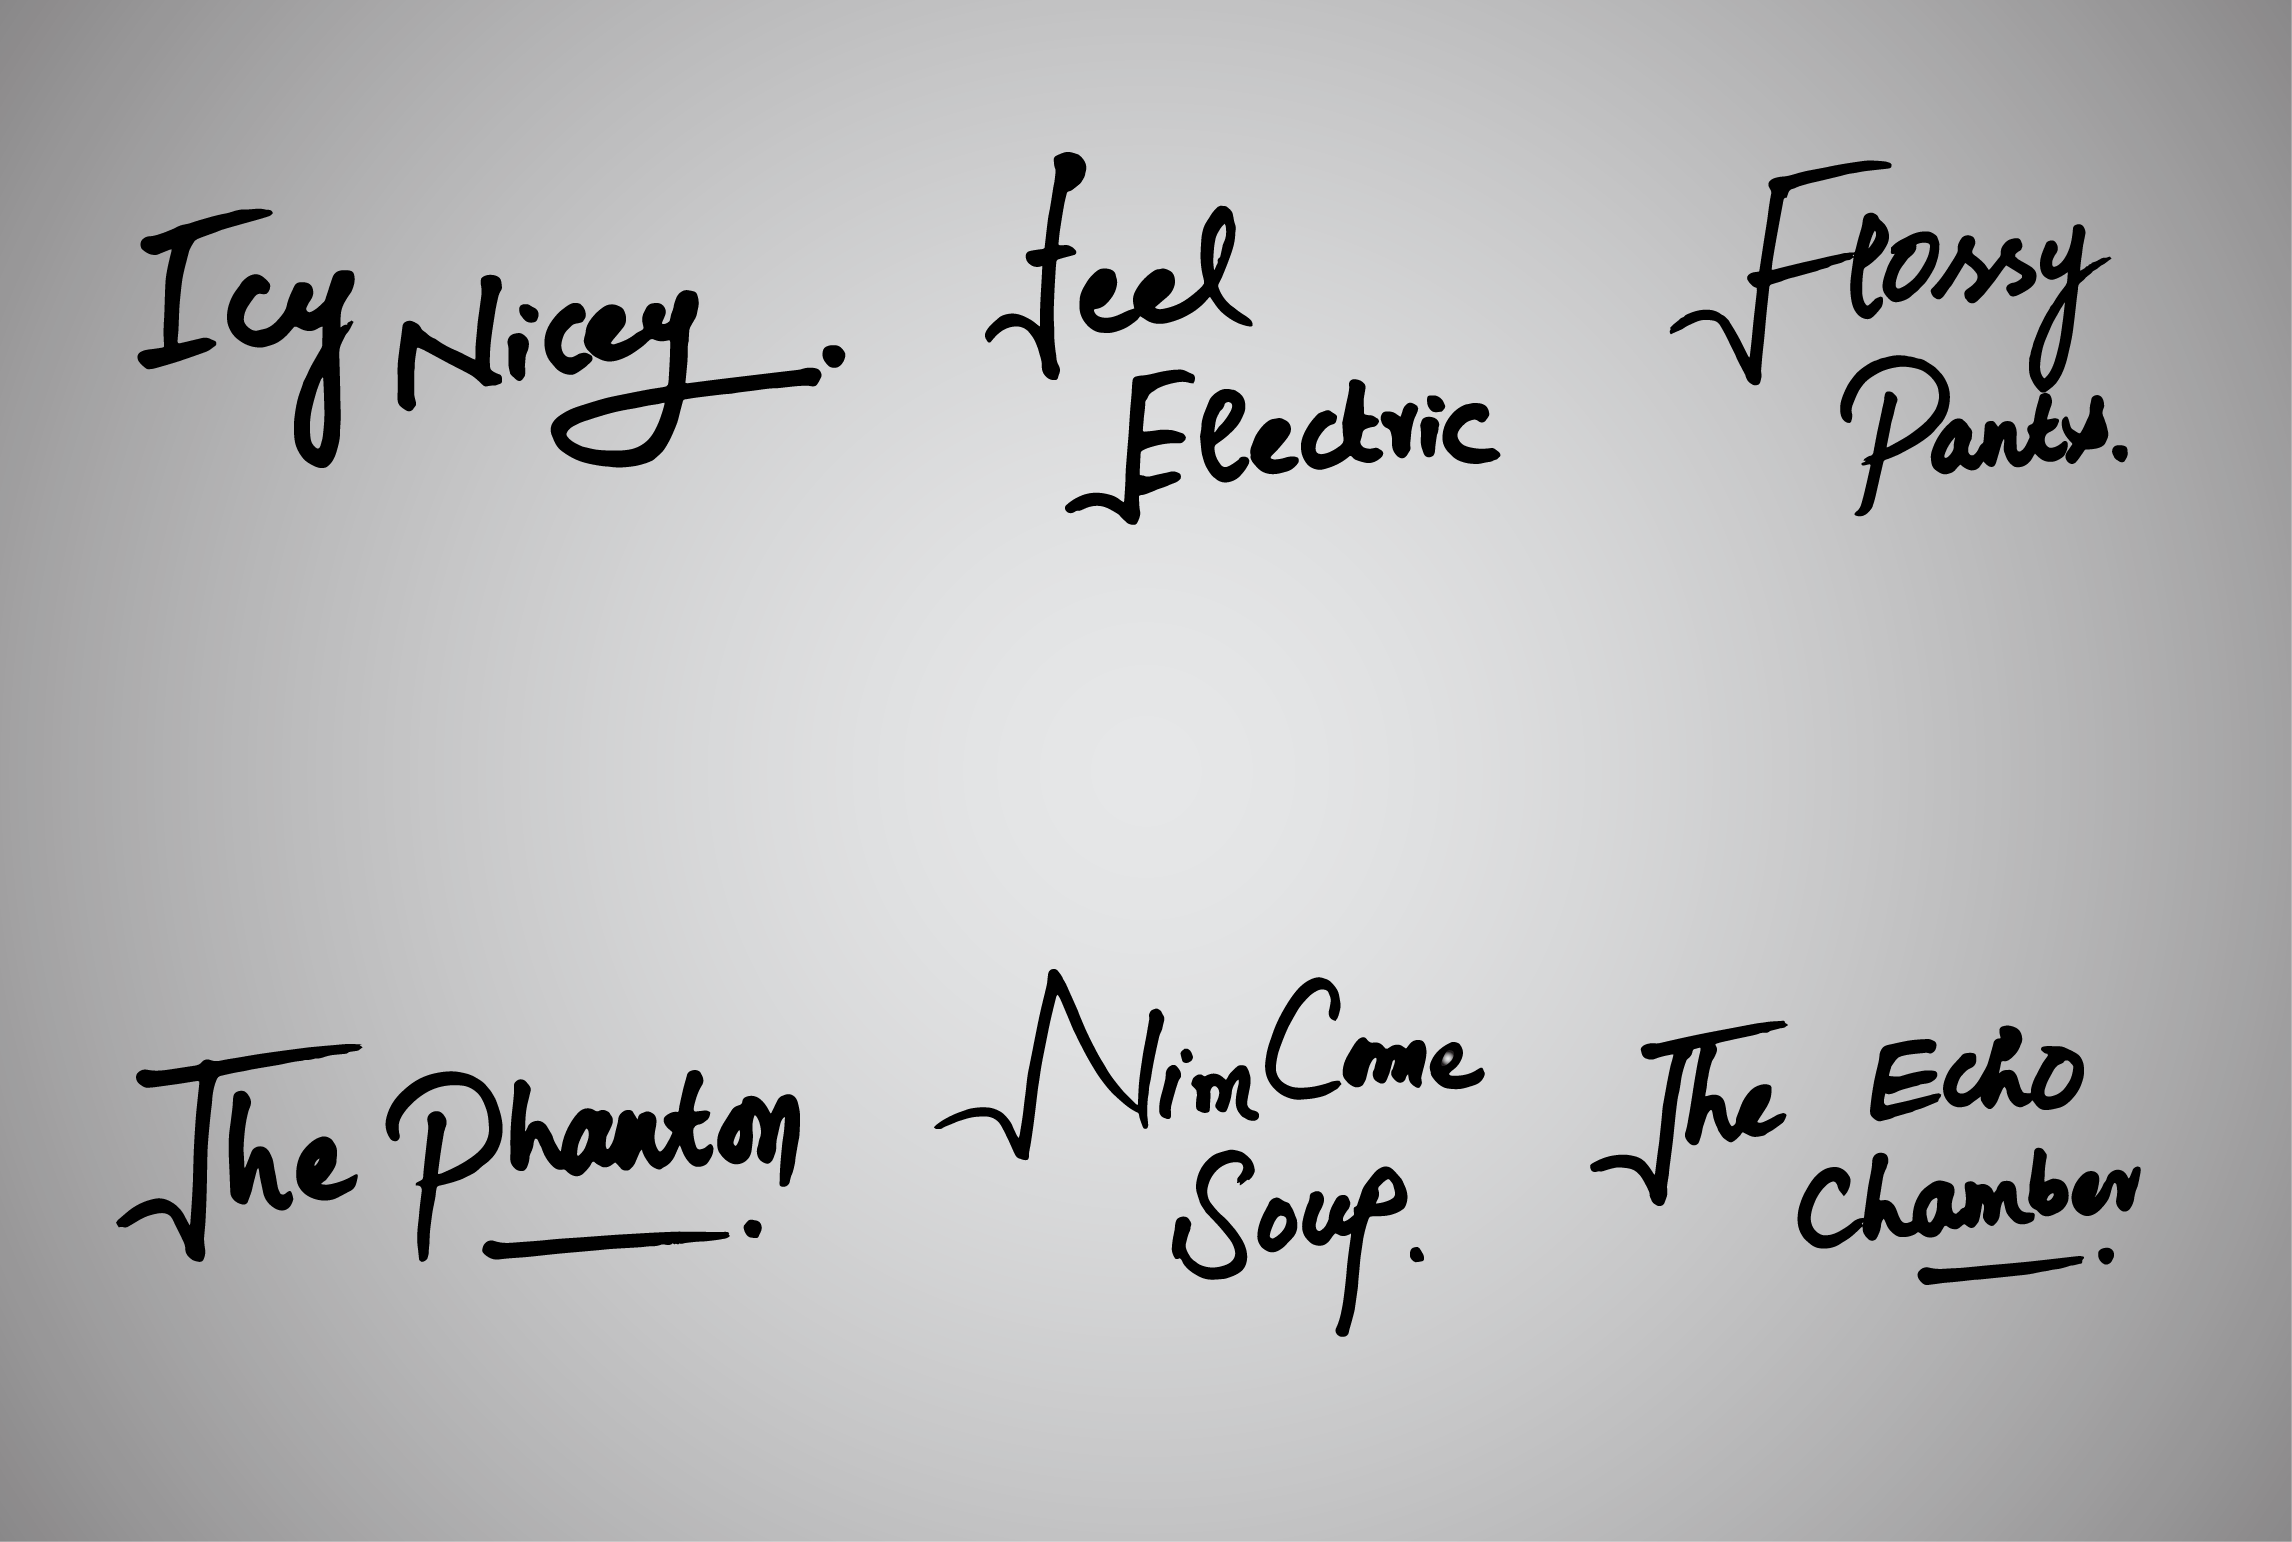 Icy Nicey.
feel
Electric
Flossy
Pants.
The Phantom.
NimCome
Soup.
The Echo
Chamber.